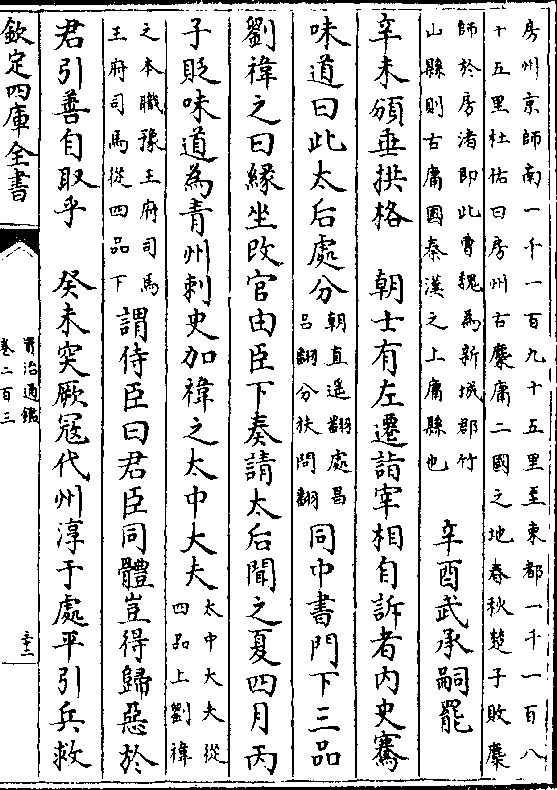 房州京師南一千一百九十五里至東都一千一百八
十五里杜佑曰房州古麇庸二國之地春秋楚子敗麇
師於房渚即此曹魏為新城郡竹
山縣則古庸國秦漢之上庸縣也
辛酉武承嗣罷
辛未頒垂拱格　朝士有左遷詣宰相自訴者内史騫
味道曰此太后處分
朝直遥翻處昌
吕翻分扶問翻
同中書門下三品
劉禕之曰緣坐改官由臣下奏請太后聞之夏四月丙
子貶味道為青州刺史加禕之太中大夫
太中大夫從
四品上劉禕
之本職豫王府司馬
王府司馬從四品下
謂侍臣曰君臣同體豈得歸惡於
君引善自取乎　癸未突厥寇代州淳于處平引兵救
欽定四庫全書
資治通鑑
卷二百三